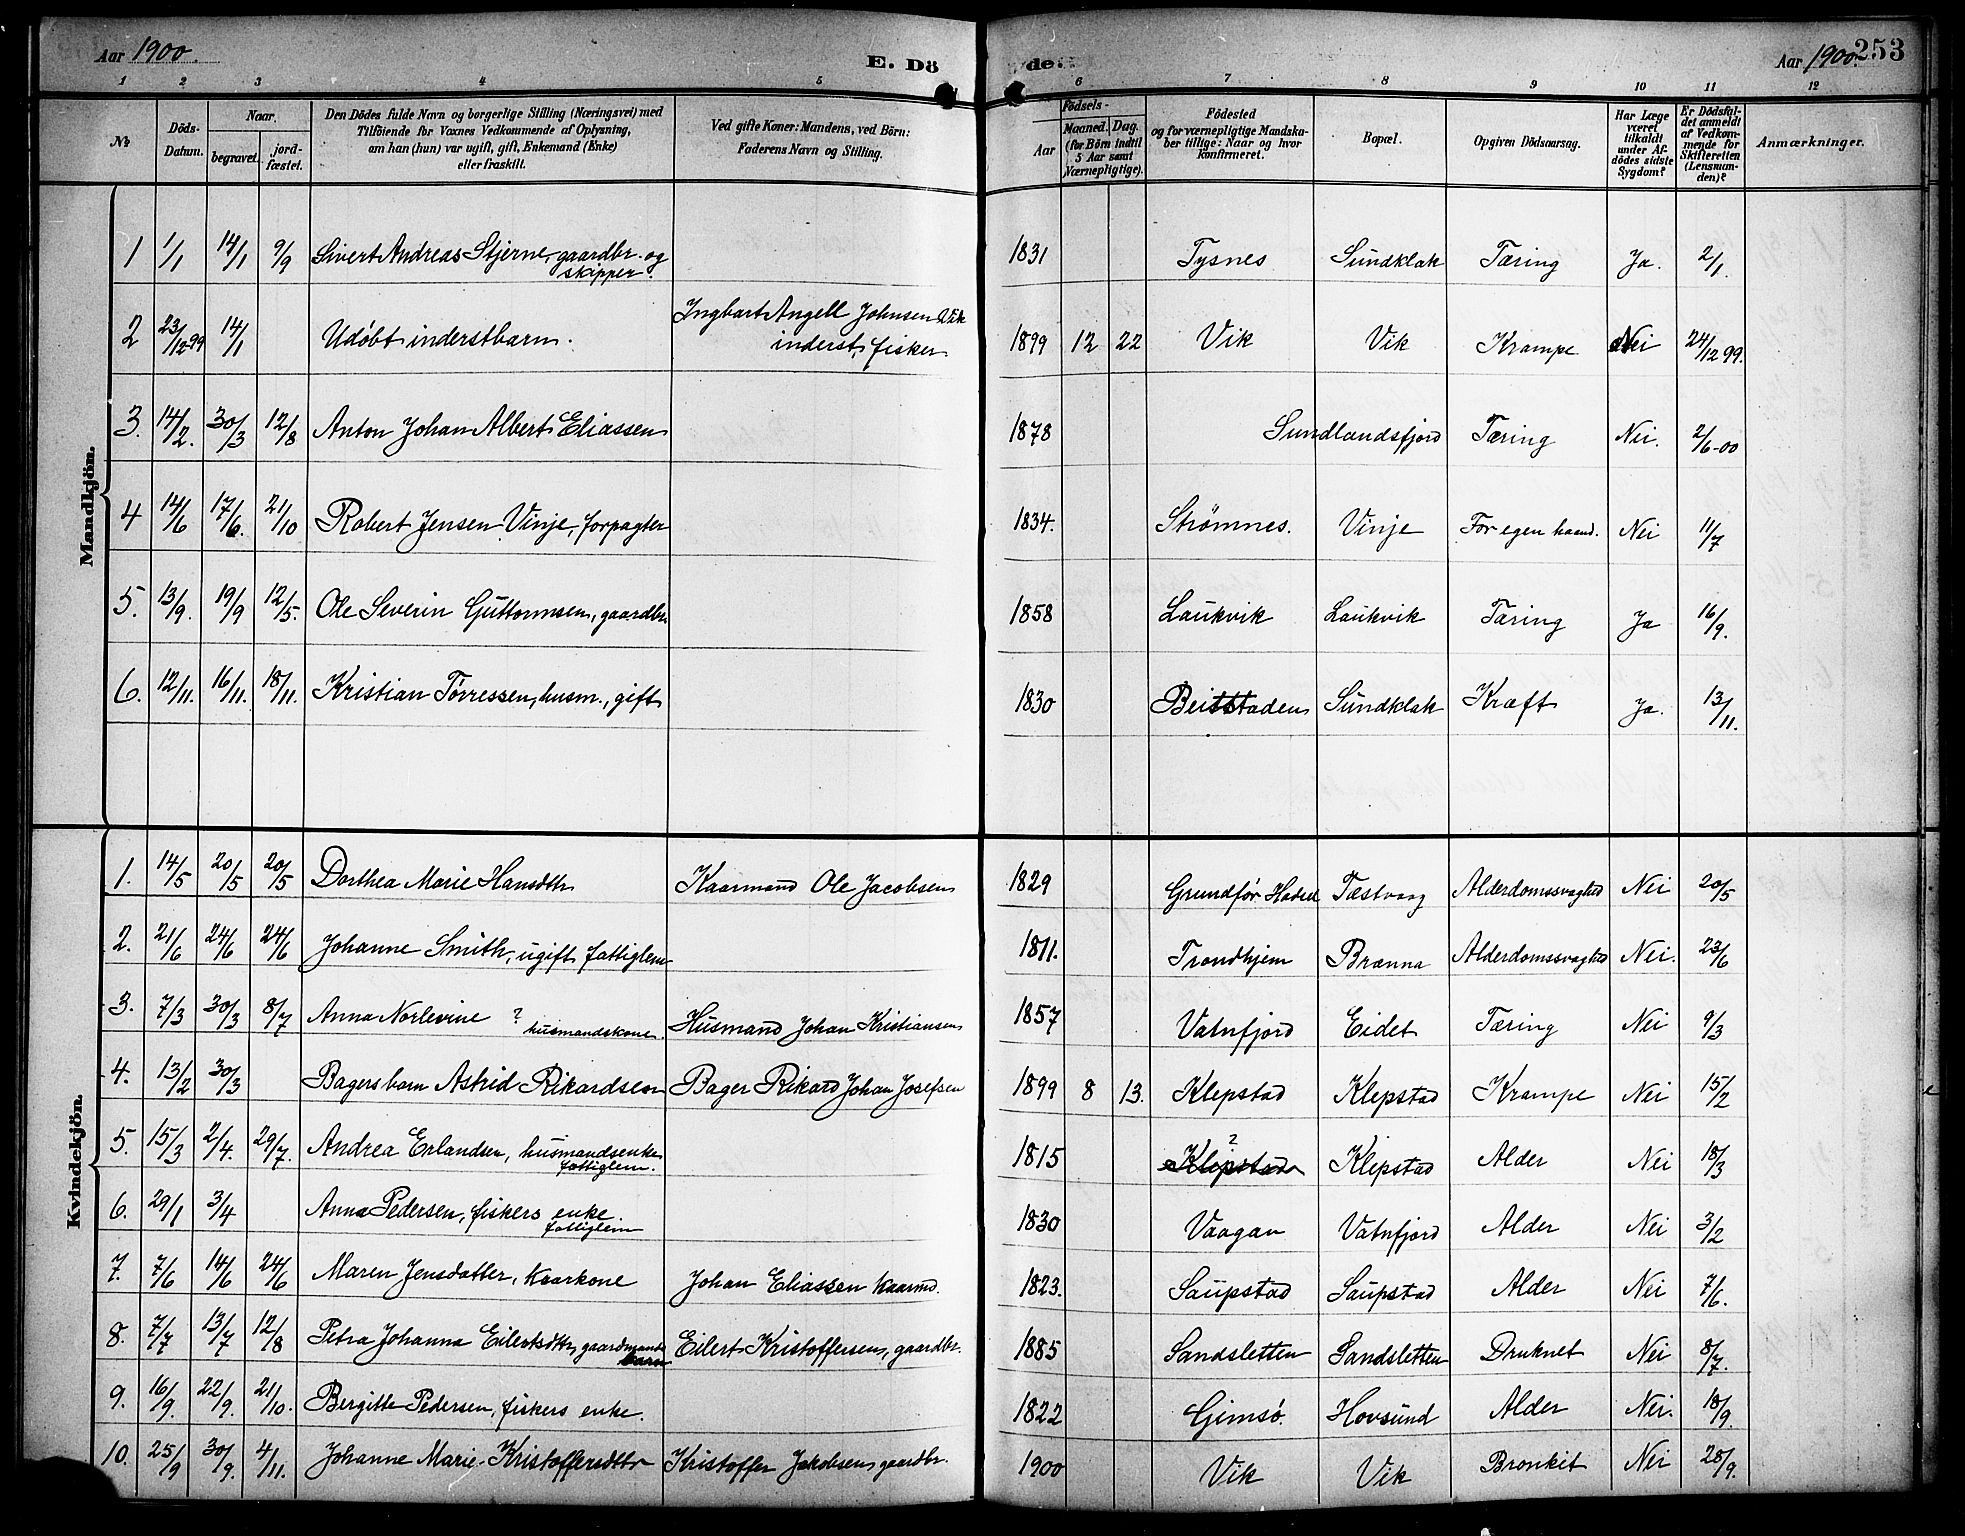 Aar 1900. E. Döde. Aar 1900. 253
1 2 3 4 5 6 7 8 9 10 11 12
№ Döds-Datum. Naar begravet. jordfæstet. Den Dödes fulde Navn og borgerlige Stilling (Næringsvei) med Tilföiende for Voxnes Vedkommende af Oplysning, om han (hun) var ugift, gift, Enkemand (Enke) eller fraskilt. Ved gifte Koner: Mandens, ved Börn: Faderens Navn og Stilling. Födsels- Aar Maaned. Dag. (for Börn indtil 5 Aar samt Værnepligtige). Födested og for værnepligtige Mandskaber tillige: Naar og hvor konfirmeret. Bopæl. Opgiven Dödsaarsag. Har Læge været tilkaldt under Afdödes sidste Sygdom? Er Dödsfaldet anmeldt af Vedkommende for Skifteretten (Lensmanden)? Anmærkninger.
Mandkjön.
1 1/1 14/1 9/9 Sivert Andreas Stjerne, gaardbr. og skipper. 1831 Tysnes Sundklak Tæring Ja. 2/1.
2 23/12 99 14/1 Udøbt inderstbarn. Ingbart Angell Johnsen Vik inderst, fisker 1899 12 22 Vik Vik Krampe Nei 24/12 99.
3. 14/2. 30/3 12/8 Anton Johan Albert Eliassen 1878 Sundlandsfjord Tæring Nei. 2/6-00
4 14/6 17/6. 21/10 Robert Jensen Vinje, forpagter 1834. Strømnes. Vinje For egen haand. Nei 11/7
5. 13/9. 19/9 12/5. Ole Severin Guttormsen, gaardbr. 1858 Laukvik Laukvik Tæring Ja 16/9.
6. 12/11. 16/11. 18/11. Kristian Tørressen, husm., gift 1830 Beitstaden Sundklak Kræft Ja. 13/11.
Kvindekjön.
1. 14/5 20/5 20/5 Dorthea Marie Hansdtr Kaarmand Ole Jacobsen 1829 Grundfør Hadsel Tæstvaag Alderdomssvaghed Nei 20/5
2. 21/6 24/6 24/6 Johanne Smith, ugift fattiglem 1811. Trondhjem Brænna Alderdomssvaghed Nei. 23/6
3. 7/3 30/3 8/7 Anna Norlevine ? husmandskone. Husmand Johan Kristiansen 1857 Vatnfjord Eidet Tæring Nei 9/3
4. 13/2 30/3 Bagersbarn Astrid Rikardsen Bager Rikard Johan Josefsen 1899 8 13. Klepstad Klepstad Krampe Nei 15/2
5. 15/3 2/4. 29/7. Andrea Erlandsen, husmandsenke fattiglem. 1815 Klepstad ? Klepstad Alder Nei 18/3
6. 29/1 3/4 Anna Pedersen, fiskers enke. fattiglem 1830 Vaagan Vatnfjord Alder Nei 3/2
7. 7/6 14/6 24/6 Maren Jensdatter, kaarkone Johan Eliassen kaarmd. 1823. Saupstad Saupstad Alder Nei 7/6.
8. 7/7 13/7 12/8 Petra Johanna Eilertsdtr, gaardmands barn Eilert Kristoffersen, gaardbr. 1885 Sandsletten Sandsletten Druknet Nei 8/7.
9. 16/9. 22/9. 21/10. Bergitte Pedersen, fiskers enke. 1822 Gimsø. Hovsund Alder Nei. 18/9.
10. 25/9 30/9. 4/11. Johanne Marie Kristoffersdtr Kristoffer Jakobsen gaardbr. 1900 Vik Vik Bronkit Nei 28/9.